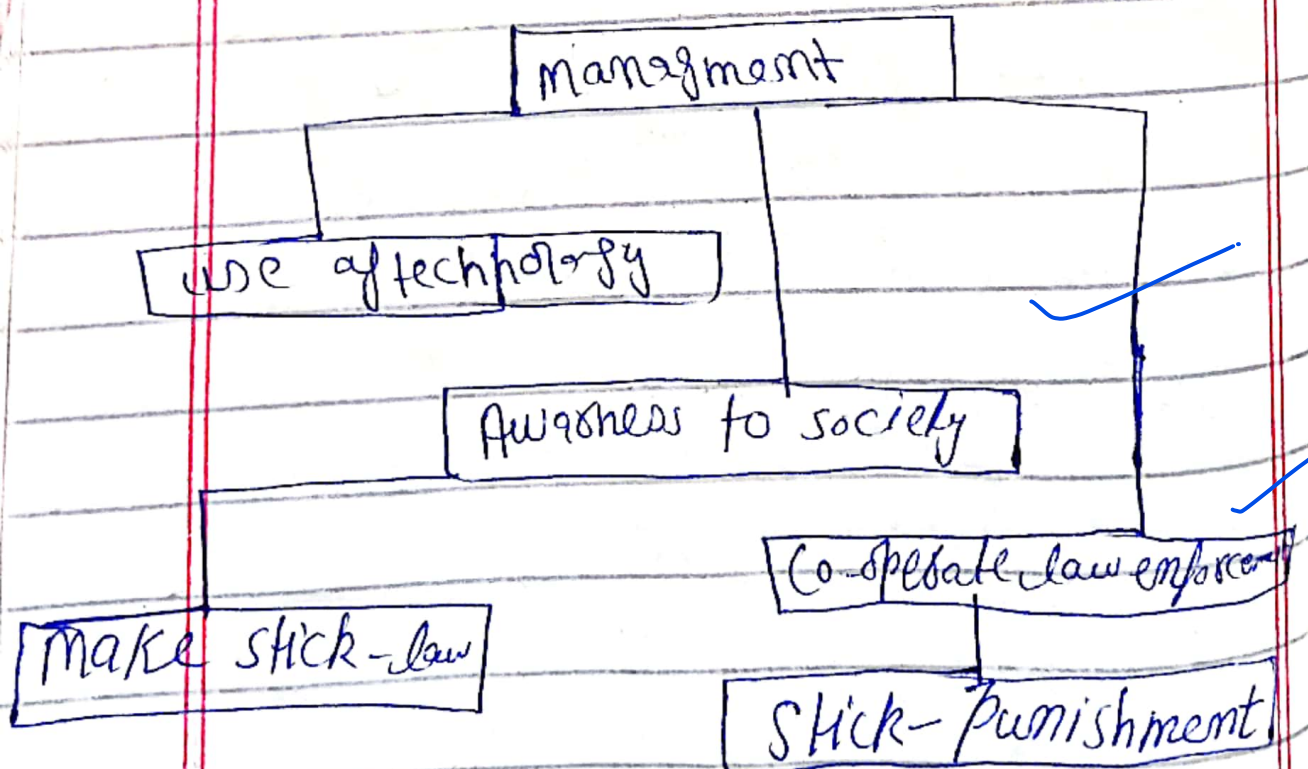 Managment
use of technology
Awarness to society
Co-operate law enforcement
Make stick-law
Stick-Punishment